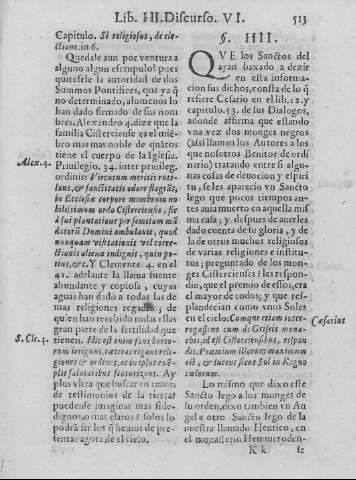 Lib. III. Discurso. VI. 513
Capitulo. Si religiosos, de ele-
ctione. in 6.
Quedale aun por ventura a
alguno algun escrupulo? pues
quietesele la autoridad de dos
Summos Pontifices, que ya q̃
no determinado, alomenos lo
han dado firmado de sus nom
bres. Alexandro 4. dize que la
familia Cisterciense es el miẽ-
bro mas mas noble de quãtos
tiene el cuerpo de la Iglesia.
Alex. 4.
Priuilegio. 34. inter priuileg.
ordinis Virtutum meritis ruti-
lans, & sanctitatis odore flagrãs,
in Ecclesiæ corpore membrum no
bilissimum ordo Cisterciensis, sic
à sui plantatione per semitam mã
datorũ Domini ambulauit, quod
nunquam visitationis vel corre-
ctionis aliena indiguit, quin po-
tius, &c. Y Clemente 4. en el
41. adelante la llama fuente
abundante y copiosa, cuyas
aguas han dado a todas las de
mas religiones regadio; de
quien han recebido todas ellas
gran parte de la fertilidad que
S. Cle. 4.
tienen. Hic est enim fons horto-
rum irriguus, cæteras rigans reli-
giones & ordines, ac in plus exẽ-
plis salutaribus scaturizans. Ay
plus vltra que buscar en razon
de testimonios de la tierra?
puedense imaginar mas fide-
dignos, o mas claros? solos lo
podrã ser los q̃ hemos de pre-
sentar agora de el cielo.
§. IIII.
QVE los Sanctos del
ayan baxado a dezir
en esta informa-
cion sus dichos, consta de lo q̃
refiere Cesario en el lib. 12. y
capitulo. 53. de sus Dialogos,
adonde affirma que estando
vna vez dos monges negros
(assi llaman los Autores a los
que nosotros Benitos de ordi
nario) tratando entre si algu-
nas cosas de deuocion y espiri
tu, se les aparecio vn Sancto
lego que pocos tiempos an-
tes auia muerto en aquella mis
ma casa; y despues de auerles
dado cuenta de su gloria, y de
la de otros muchos religiosos
de varias religiones e institu-
tos; preguntado de los mon-
ges Cistercienses? les respon-
dio, que el premio de essos, era
el mayor de todos; y que res-
plandecian como vnos Soles
Cæsarius
en el cielo. Cumque etiam inter-
rogassent eum de Griseis mona-
chis, id est Cisterciensibus, respon
dit. Præmium illorum maximum
est, & lucent sicut Sol in Regno
cælorum.
Lo mismo que dixo este
Sancto lego a los monges de
su orden, dixo tambien vn An
gel a otro Sancto lego de la
nuestra llamado Henrico, en
el monasterio Hemmeroden-
K k se